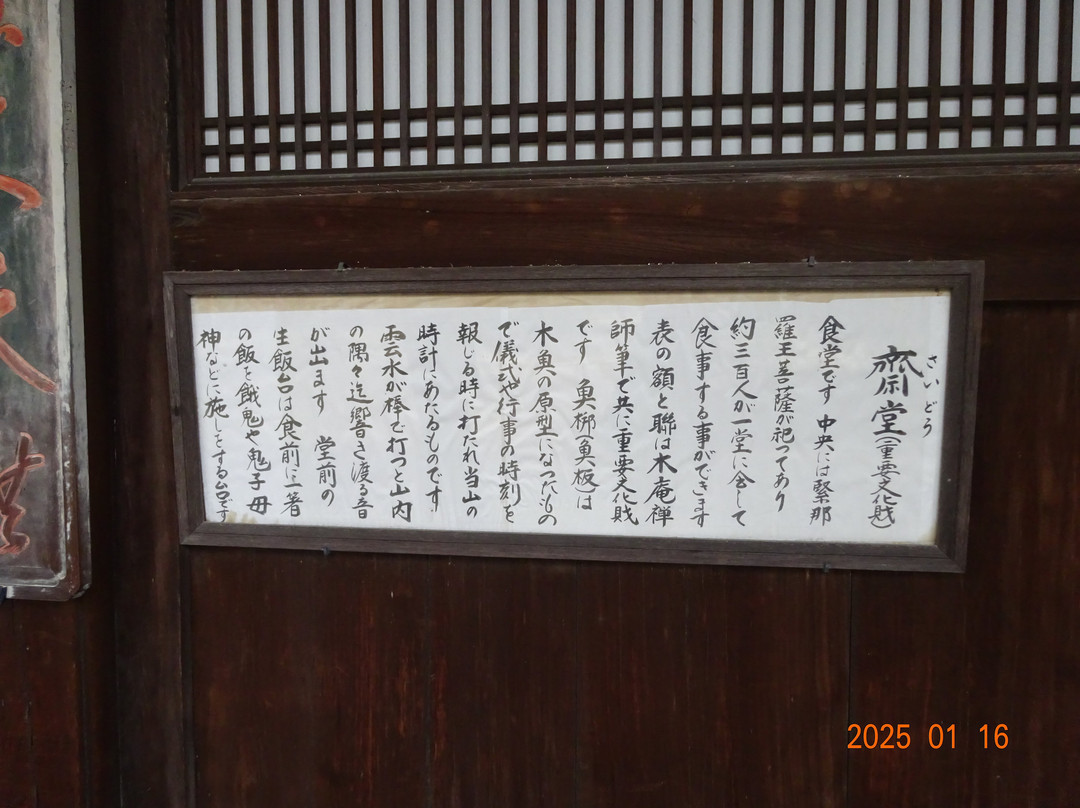 さいどう
齋堂(重要文化財)
食堂です 中央には緊那
羅王菩薩が祀ってあり
約三百人が一堂に会して
食事する事ができます
表の額と聯は木庵禅
師筆で共に重要文化財
です 魚梆(魚板)は
木魚の原型になったもの
で儀式や行事の時刻を
報じる時に打たれ当山の
時計にあたるものです
雲水が棒で打つと山内
の隅々迄響き渡る音
が出ます 堂前の
生飯台は食前に一箸
の飯を餓鬼や鬼子母
神などに施しをする台です
2025 01 16